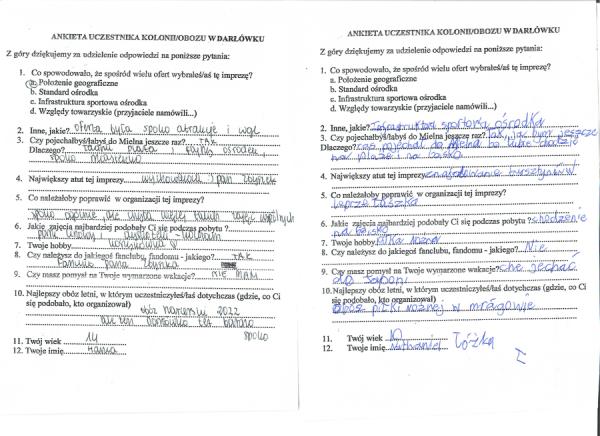 ANKIETA UCZESTNIKA KOLONII/OBOZU W DARŁÓWKU
Z góry dziękujemy za udzielenie odpowiedzi na poniższe pytania:
1. Co spowodowało, że spośród wielu ofert wybrałeś/aś tę imprezę?
a. Położenie geograficzne
b. Standard ośrodka
c. Infrastruktura sportowa ośrodka
d. Względy towarzyskie (przyjaciele namówili...)
2. Inne, jakie? oferta była spoko atrakcje i wgl
3. Czy pojechałbyś/łabyś do Mielna jeszcze raz? TAK
Dlaczego? ładna plaża i fajny ośrodek,
spoko miasteczko
4. Największy atut tej imprezy wychowawcy pan Zbyszek
5. Co należałoby poprawić w organizacji tej imprezy?
spoko ogólnie ale chyba więcej takich zajęć wspólnych
6. Jakie zajęcia najbardziej podobały Ci się podczas pobytu ?
7. Twoje hobby
8. Czy należysz do jakiegoś fanclubu, fandomu - jakiego? TAK
9. Czy masz pomysł na Twoje wymarzone wakacje? NIE MAM
10. Najlepszy obóz letni, w którym uczestniczyłeś/łaś dotychczas (gdzie, co Ci
się podobało, kto organizował)
obóz harcerski 2022
ale ten niedaleko też bardzo
spoko
11. Twój wiek 14
12. Twoje imię Hanna
ANKIETA UCZESTNIKA KOLONII/OBOZU W DARŁÓWKU
Z góry dziękujemy za udzielenie odpowiedzi na poniższe pytania:
1. Co spowodowało, że spośród wielu ofert wybrałeś/aś tę imprezę?
a. Położenie geograficzne
b. Standard ośrodka
c. Infrastruktura sportowa ośrodka
d. Względy towarzyskie (przyjaciele namówili...)
2. Inne, jakie? Infrastruktura sportowa ośrodka
3. Czy pojechałbyś/łabyś do Mielna jeszcze raz? Tak, jak bym jeszcze
Dlaczego? raz pojechał do Mielna bo lubię chodzić
na plażę i na boisko
4. Największy atut tej imprezy znajdowanie bursztynów
5. Co należałoby poprawić w organizacji tej imprezy?
lepsze łóżka
6. Jakie zajęcia najbardziej podobały Ci się podczas pobytu ? chodzenie
na boisko
7. Twoje hobby Piłka nożna
8. Czy należysz do jakiegoś fanclubu, fandomu - jakiego? Nie
9. Czy masz pomysł na Twoje wymarzone wakacje? chce jechać
do Japoni
10. Najlepszy obóz letni, w którym uczestniczyłeś/łaś dotychczas (gdzie, co Ci
się podobało, kto organizował)
Obóz piłki nożnej w mrągowie
11. Twój wiek 10
12. Twoje imię Nathaniel
łóżka